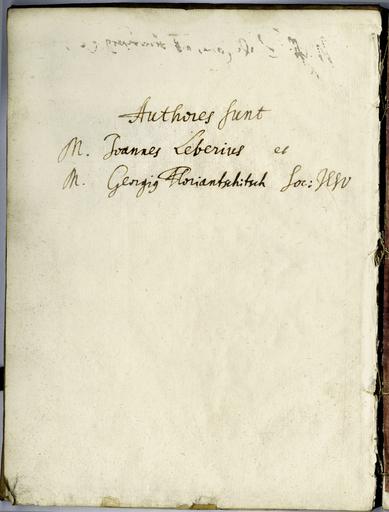 Authores sunt
M. Joannes Leberius et
M. Georgig Floriantschitsch Soc: JESU